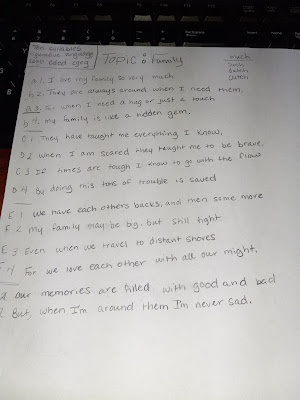 Ten syllables
Topic: Family
much
such
dutch
a 1. I love my family so very much
b 2. They are always around when I need them,
a 3. when I need a hug or just a touch
b 4. my family is like a hidden gem.
C 1. They have taught me everything I know,
D 2 when I am scared they taught me to be brave.
C 3 If times are tough I know to go with the flow
D 4 By doing this tons of trouble is saved
E 1 we have each others backs, and then some more
F 2 my family may be big, but still tight
E 3 Even when we travel to distant shores
4 For we love each other with all our might.
our memories are filled with good and bad
But, when I'm around them I'm never sad.